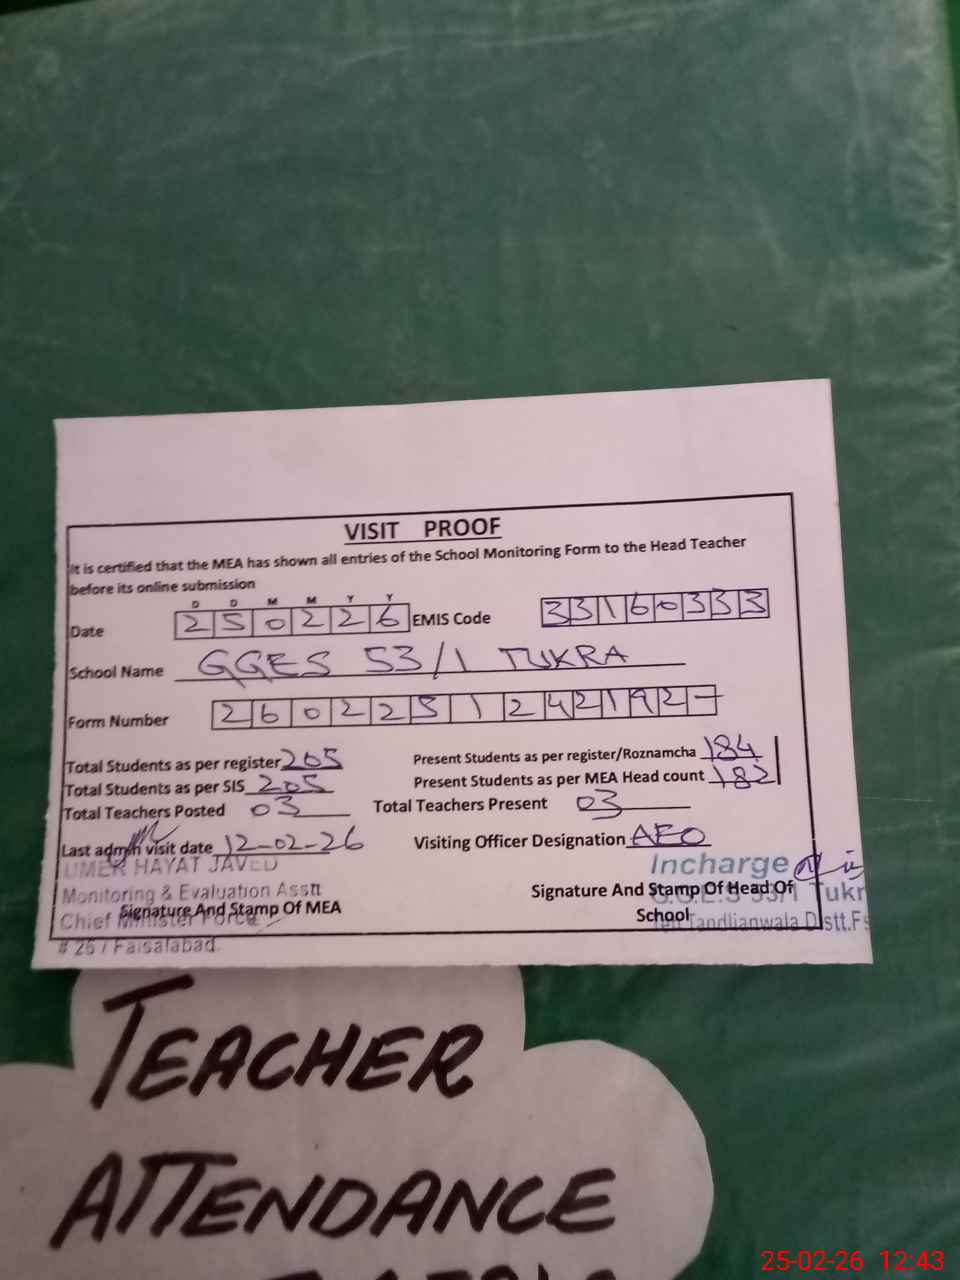 VISIT PROOF
It is certified that the MEA has shown all entries of the School Monitoring Form to the Head Teacher
before its online submission
D D M M Y Y
Date 2 5 0 2 2 6 EMIS Code 3 3 1 6 0 3 3 3
School Name GGES 53/1 TUKRA
Form Number 2 6 0 2 2 5 1 2 4 2 1 9 2 -
Total Students as per register 205 Present Students as per register/Roznamcha 184
Total Students as per SIS 205 Present Students as per MEA Head count 182
Total Teachers Posted 03 Total Teachers Present 03
Last admn visit date 12-02-26 Visiting Officer Designation AEO
UMER HAYAT JAVED Incharge
Monitoring & Evaluation Asstt Signature And Stamp Of Head Of Tukr
Signature And Stamp Of MEA School
Chief Minister Force Tandlianwala Distt.Fs
# 26 / Faisalabad.
TEACHER
ATTENDANCE
25-02-26 12:43